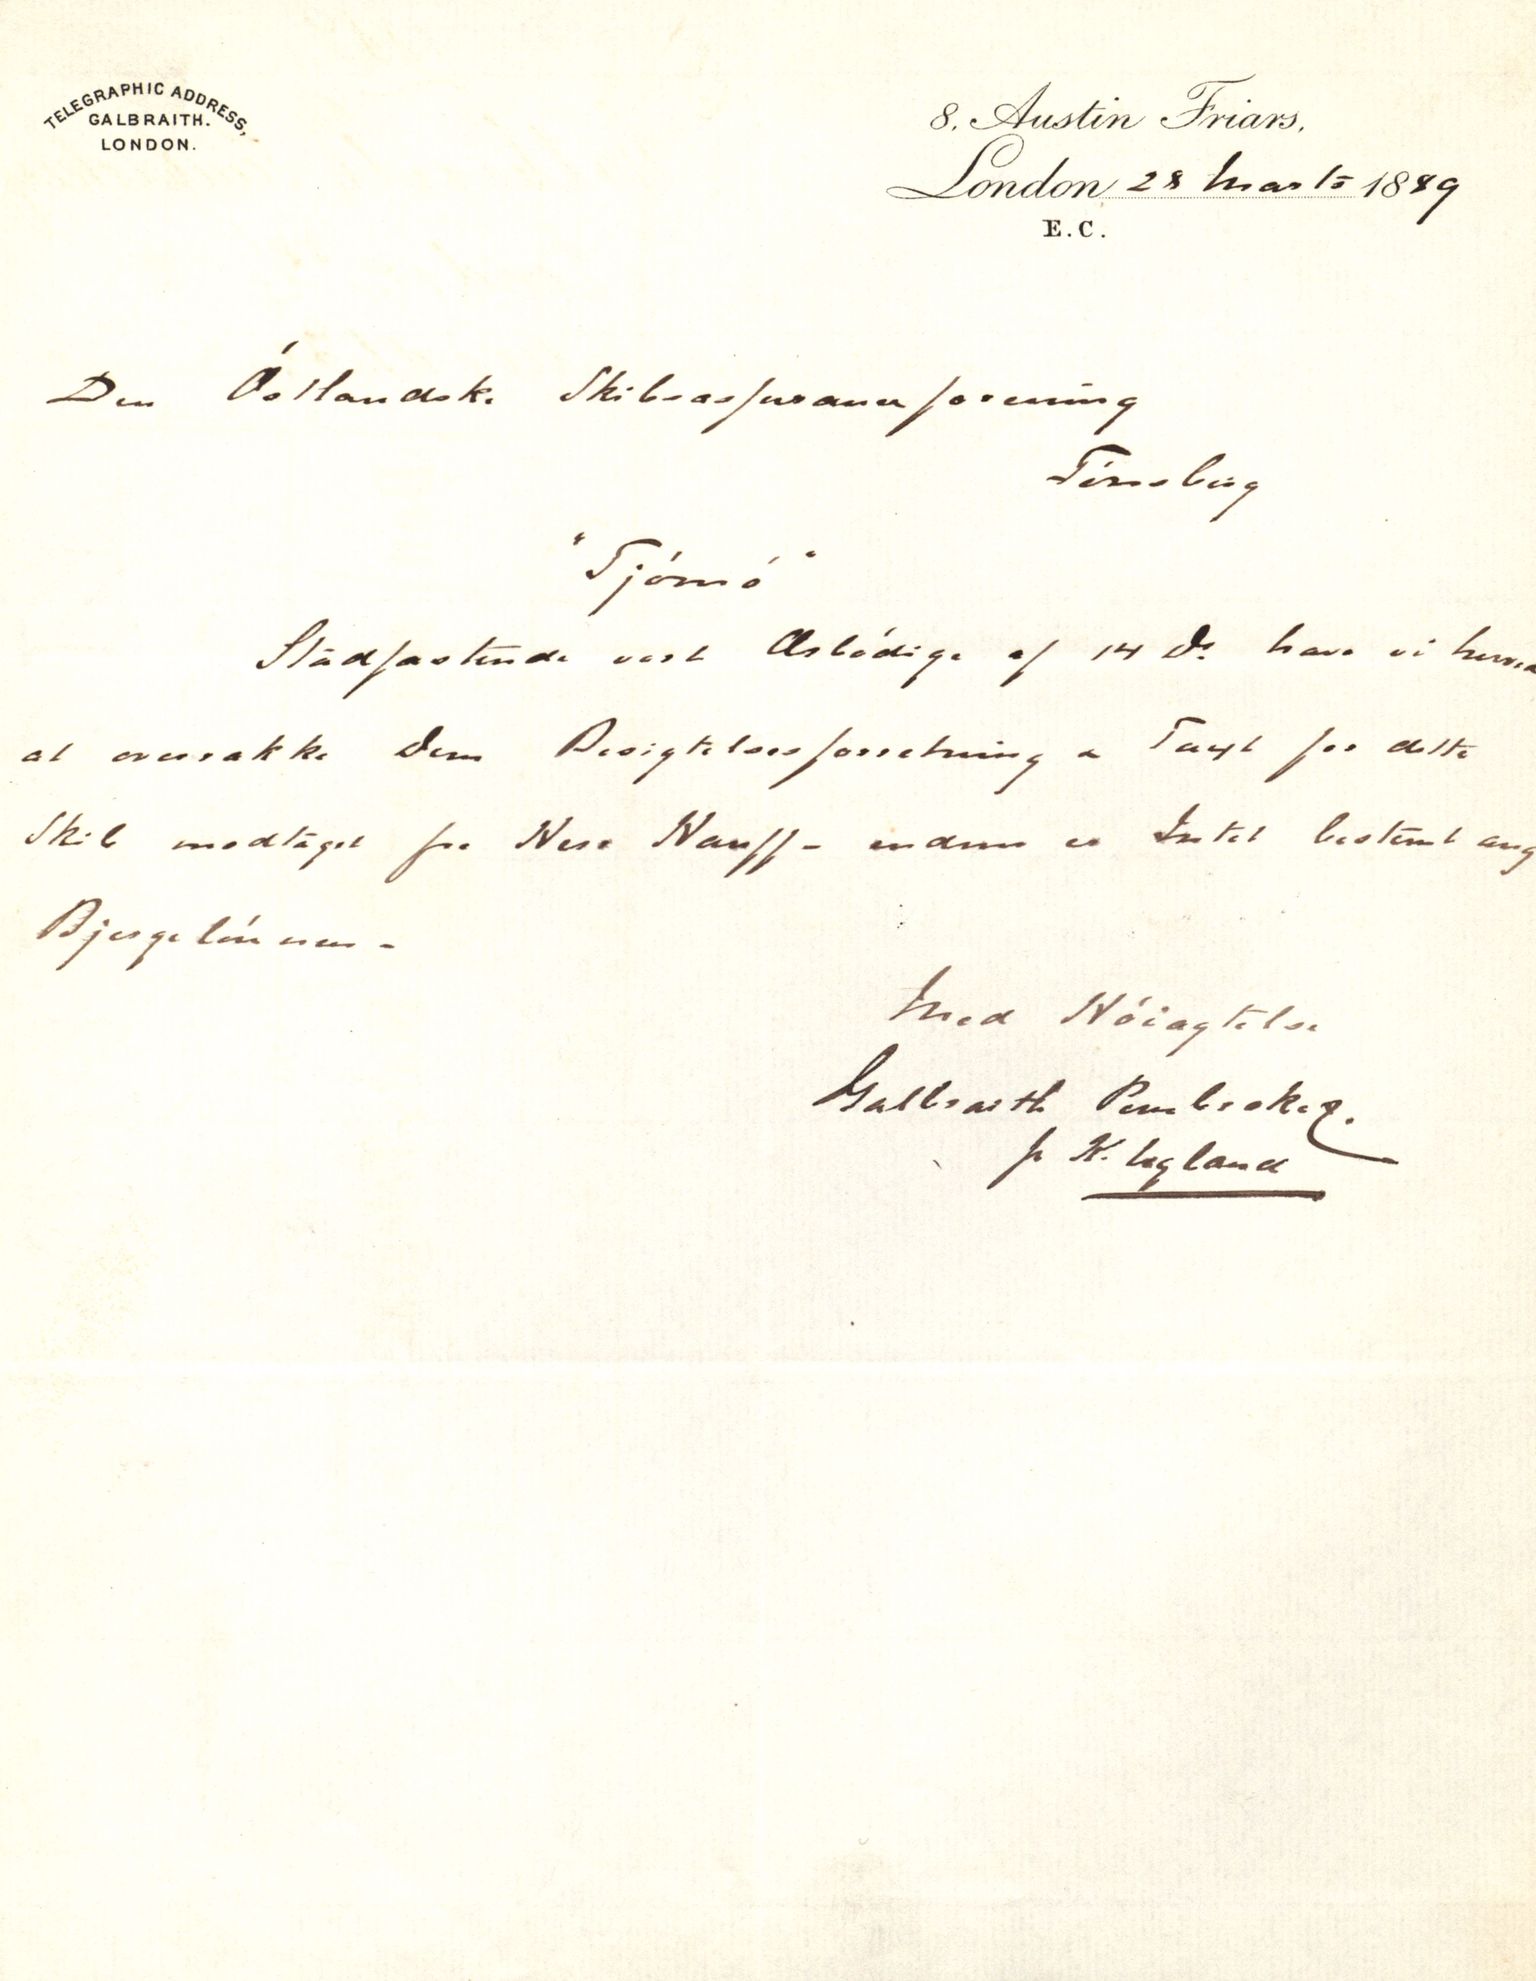 TELEGRAPHIC ADDRESS,
GALBRAITH.
LONDON.
8, Austin Friars,
London 28 Marts 1889
E.C.
Den Óstlandske Skibsassuranceforening
Tónsberg
"Tjómó"
Stadfæstende vort Ærbódige af 14 Ds. have vi herved
at overrække Dem Besigtelsesforretning & Taxt for dette
Skib modtaget fra Herr Hauff - endnu er Intet bestemt ang
Bjergelónnen -
Med Hóiagtelse
Galbraith Pembroke &.
pr K. Ugland